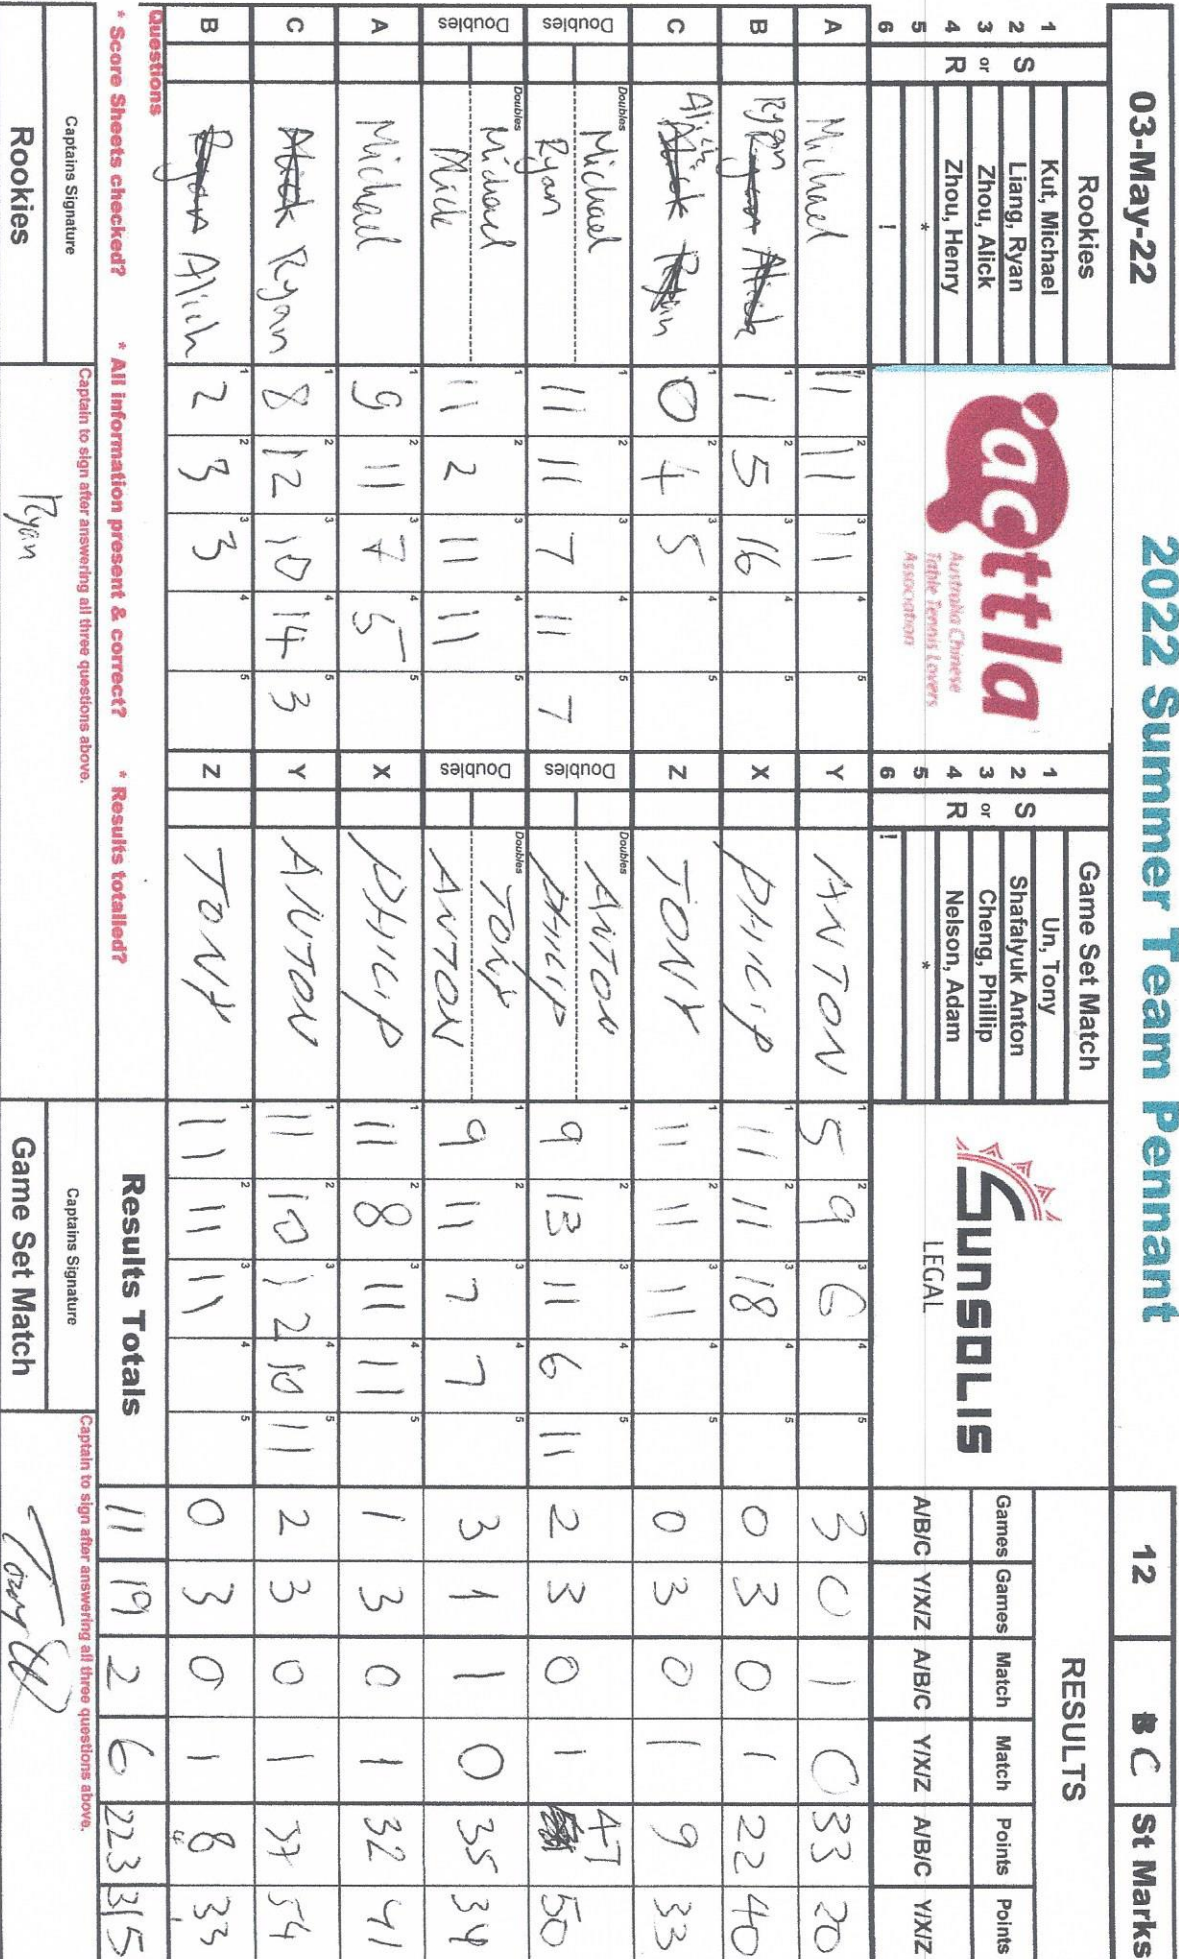 2022 Summer Team Pennant
03-May-22
12
B C
St Marks
Rookies
1 Kut, Michael
2 S Liang, Ryan
3 or Zhou, Alick
4 R Zhou, Henry
5 *
6 !
acttla
Australia Chinese
Table Tennis Lovers
Association
Game Set Match
1 Un, Tony
2 S Shafalyuk Anton
3 or Cheng, Phillip
4 R Nelson, Adam
5 *
6 !
SUNSOLIS
LEGAL
RESULTS
Games Games Match Match Points Points
A/B/C Y/X/Z A/B/C Y/X/Z A/B/C Y/X/Z
A Michael 11 11 11 Y ANTON 5 9 6 3 0 1 0 33 20
B Ryan 1 5 16 X PHILIP 11 11 18 0 3 0 1 22 40
C Alick 0 4 5 Z TONY 11 11 11 0 3 0 1 9 33
Doubles Doubles Michael 11 11 7 11 7 Doubles Doubles ANTON 9 13 11 6 11 2 3 0 1 47 50
Ryan PHILIP
Doubles Doubles Michael 11 2 11 11 Doubles Doubles TONY 9 11 7 7 3 1 1 0 35 34
Alick ANTON
A Michael 9 11 7 5 X PHILIP 11 8 11 11 1 3 0 1 32 41
C Ryan 8 12 10 14 3 Y ANTON 11 10 12 10 11 2 3 0 1 37 54
B Alick 2 3 3 Z TONY 11 11 11 0 3 0 1 8 33
Questions
* Score Sheets checked? * All information present & correct? * Results totalled?
Results Totals 11 19 2 6 223 315
Captains Signature
Rookies
Captain to sign after answering all three questions above.
Ryan
Captains Signature
Game Set Match
Captain to sign after answering all three questions above.
Tony